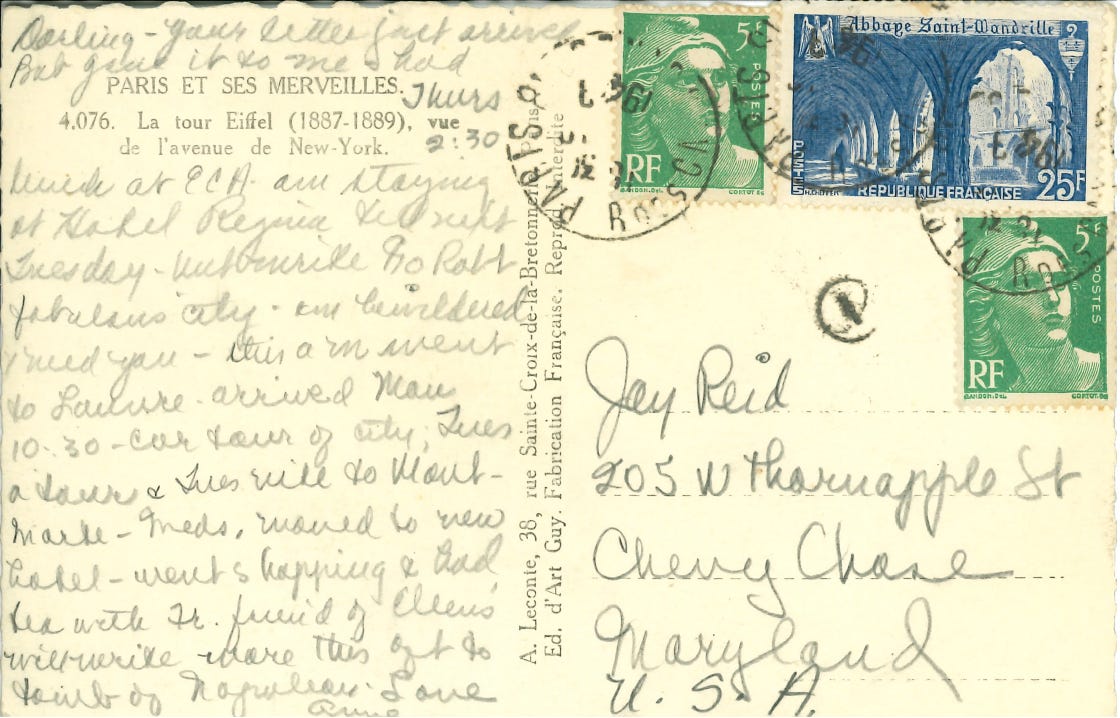 Darling - your letter just arrived
Bob gave it to me I had
PARIS ET SES MERVEILLES.
Thurs
4.076. La tour Eiffel (1887-1889), vue
2:30
de l'avenue de New-York.
lunch at ECA - am staying
at Hotel Regina til next
Tuesday - write
fabulous city - am bewildered
I need you - this a m went
to Louvre - arrived Mon
10:30 - car tour of city, Tues
a tours & Tues nite to Mont-
marte - Weds, moved to new
hotel - went shopping & had
tea with Fr. friend of Ellens
will write more this aft to
tomb of Napoleon. Love
Anne
A. Leconte, 38, rue Sainte-Croix-de-la-Bretonnerie, Paris
Ed. d'Art Guy. Fabrication Française. Reprod. interdite
5F
POSTES
RF
GANDON.DEL.
CORTOT.SC
Abbaye Saint-Wandrille
POSTES
RÉPUBLIQUE FRANÇAISE
25F
5F
POSTES
RF
GANDON.DEL.
CORTOT.SC
PARIS
Jay Reid
205 N Thornapple St
Chevy Chase
Maryland
U. S. A.